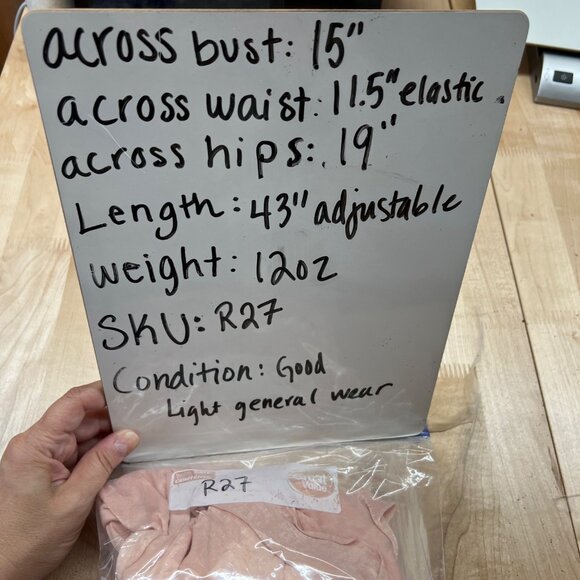 across bust: 15"
across waist: 11.5" elastic
across hips: 19"
Length: 43" adjustable
weight: 12oz
SKU: R27
Condition: Good
Light general wear
R27
Value